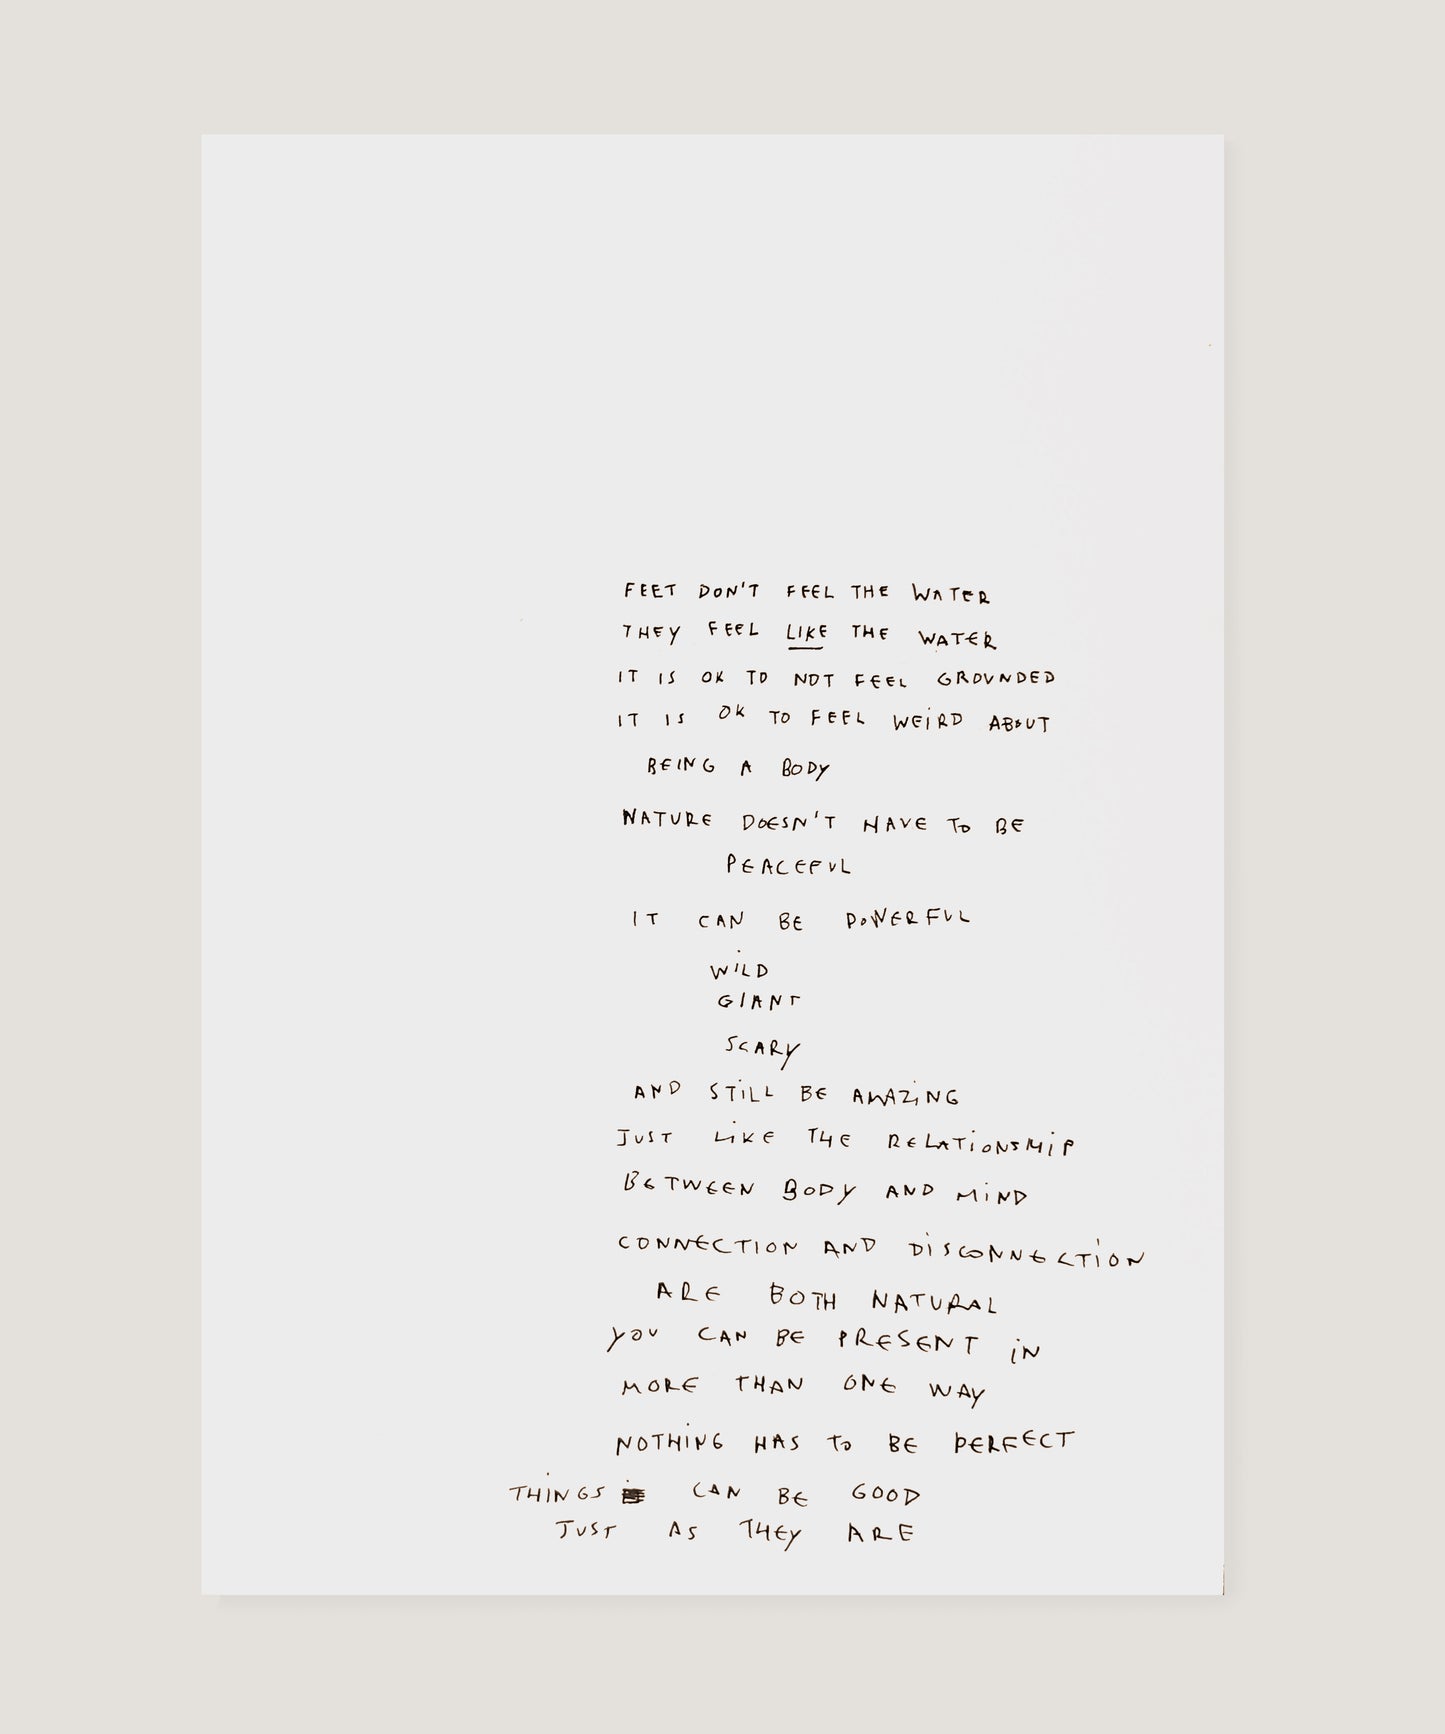 FEET DON'T FEEL THE WATER
THEY FEEL LIKE THE WATER
IT IS OK TO NOT FEEL GROUNDED
IT IS OK TO FEEL WEIRD ABOUT
BEING A BODY
NATURE DOESN'T HAVE TO BE
PEACEFUL
IT CAN BE POWERFUL
WILD
GIANT
SCARY
AND STILL BE AMAZING
JUST LIKE THE RELATIONSHIP
BETWEEN BODY AND MIND
CONNECTION AND DISCONNECTION
ARE BOTH NATURAL
YOU CAN BE PRESENT IN
MORE THAN ONE WAY
NOTHING HAS TO BE PERFECT
THINGS CAN BE GOOD
JUST AS THEY ARE